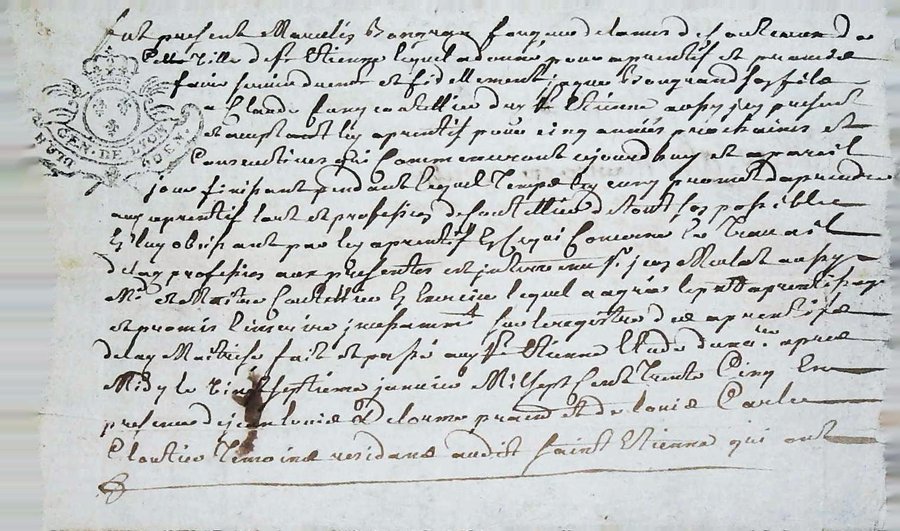 fut present Marcelis Bongran forgeur de lames de couteaux de
Cette Ville de St Etienne lequel a donné pour aprentif et promis
faire servir duement et fidellement Bongrand son fils
a Claude Cury coutellier dud St Etienne aussy icy present
et acceptant led aprentif pour cinq années prochaines et
Consecutives qui Commenceront ajourdhuy et a pareil
GEN. DE LYON
jour finissant pendant lequel Temps led Cury promet daprendre
aud aprentif lart et profession de coutellier de tout son possible
Et luy obeissant par led aprentif En ce qui Concerne Le Travail
de lad profession aux presentes est intervenu sr Jean Mulat aussy
Me et Maitre Coutellier En Exercice lequel a agréé le pnt aprentissage
et promis linscrire incessamt sur le registre des aprentifs
de lad Maitrise fait et passé aud St Etienne Etude du nore apres
Midy le Vingt septieme janvier Mil sept Cent Trente Cinq En
presence de jean Louis Delorme pratt et de Louis Carle
Cloutier Temoins residans audit Saint Etienne qui ont